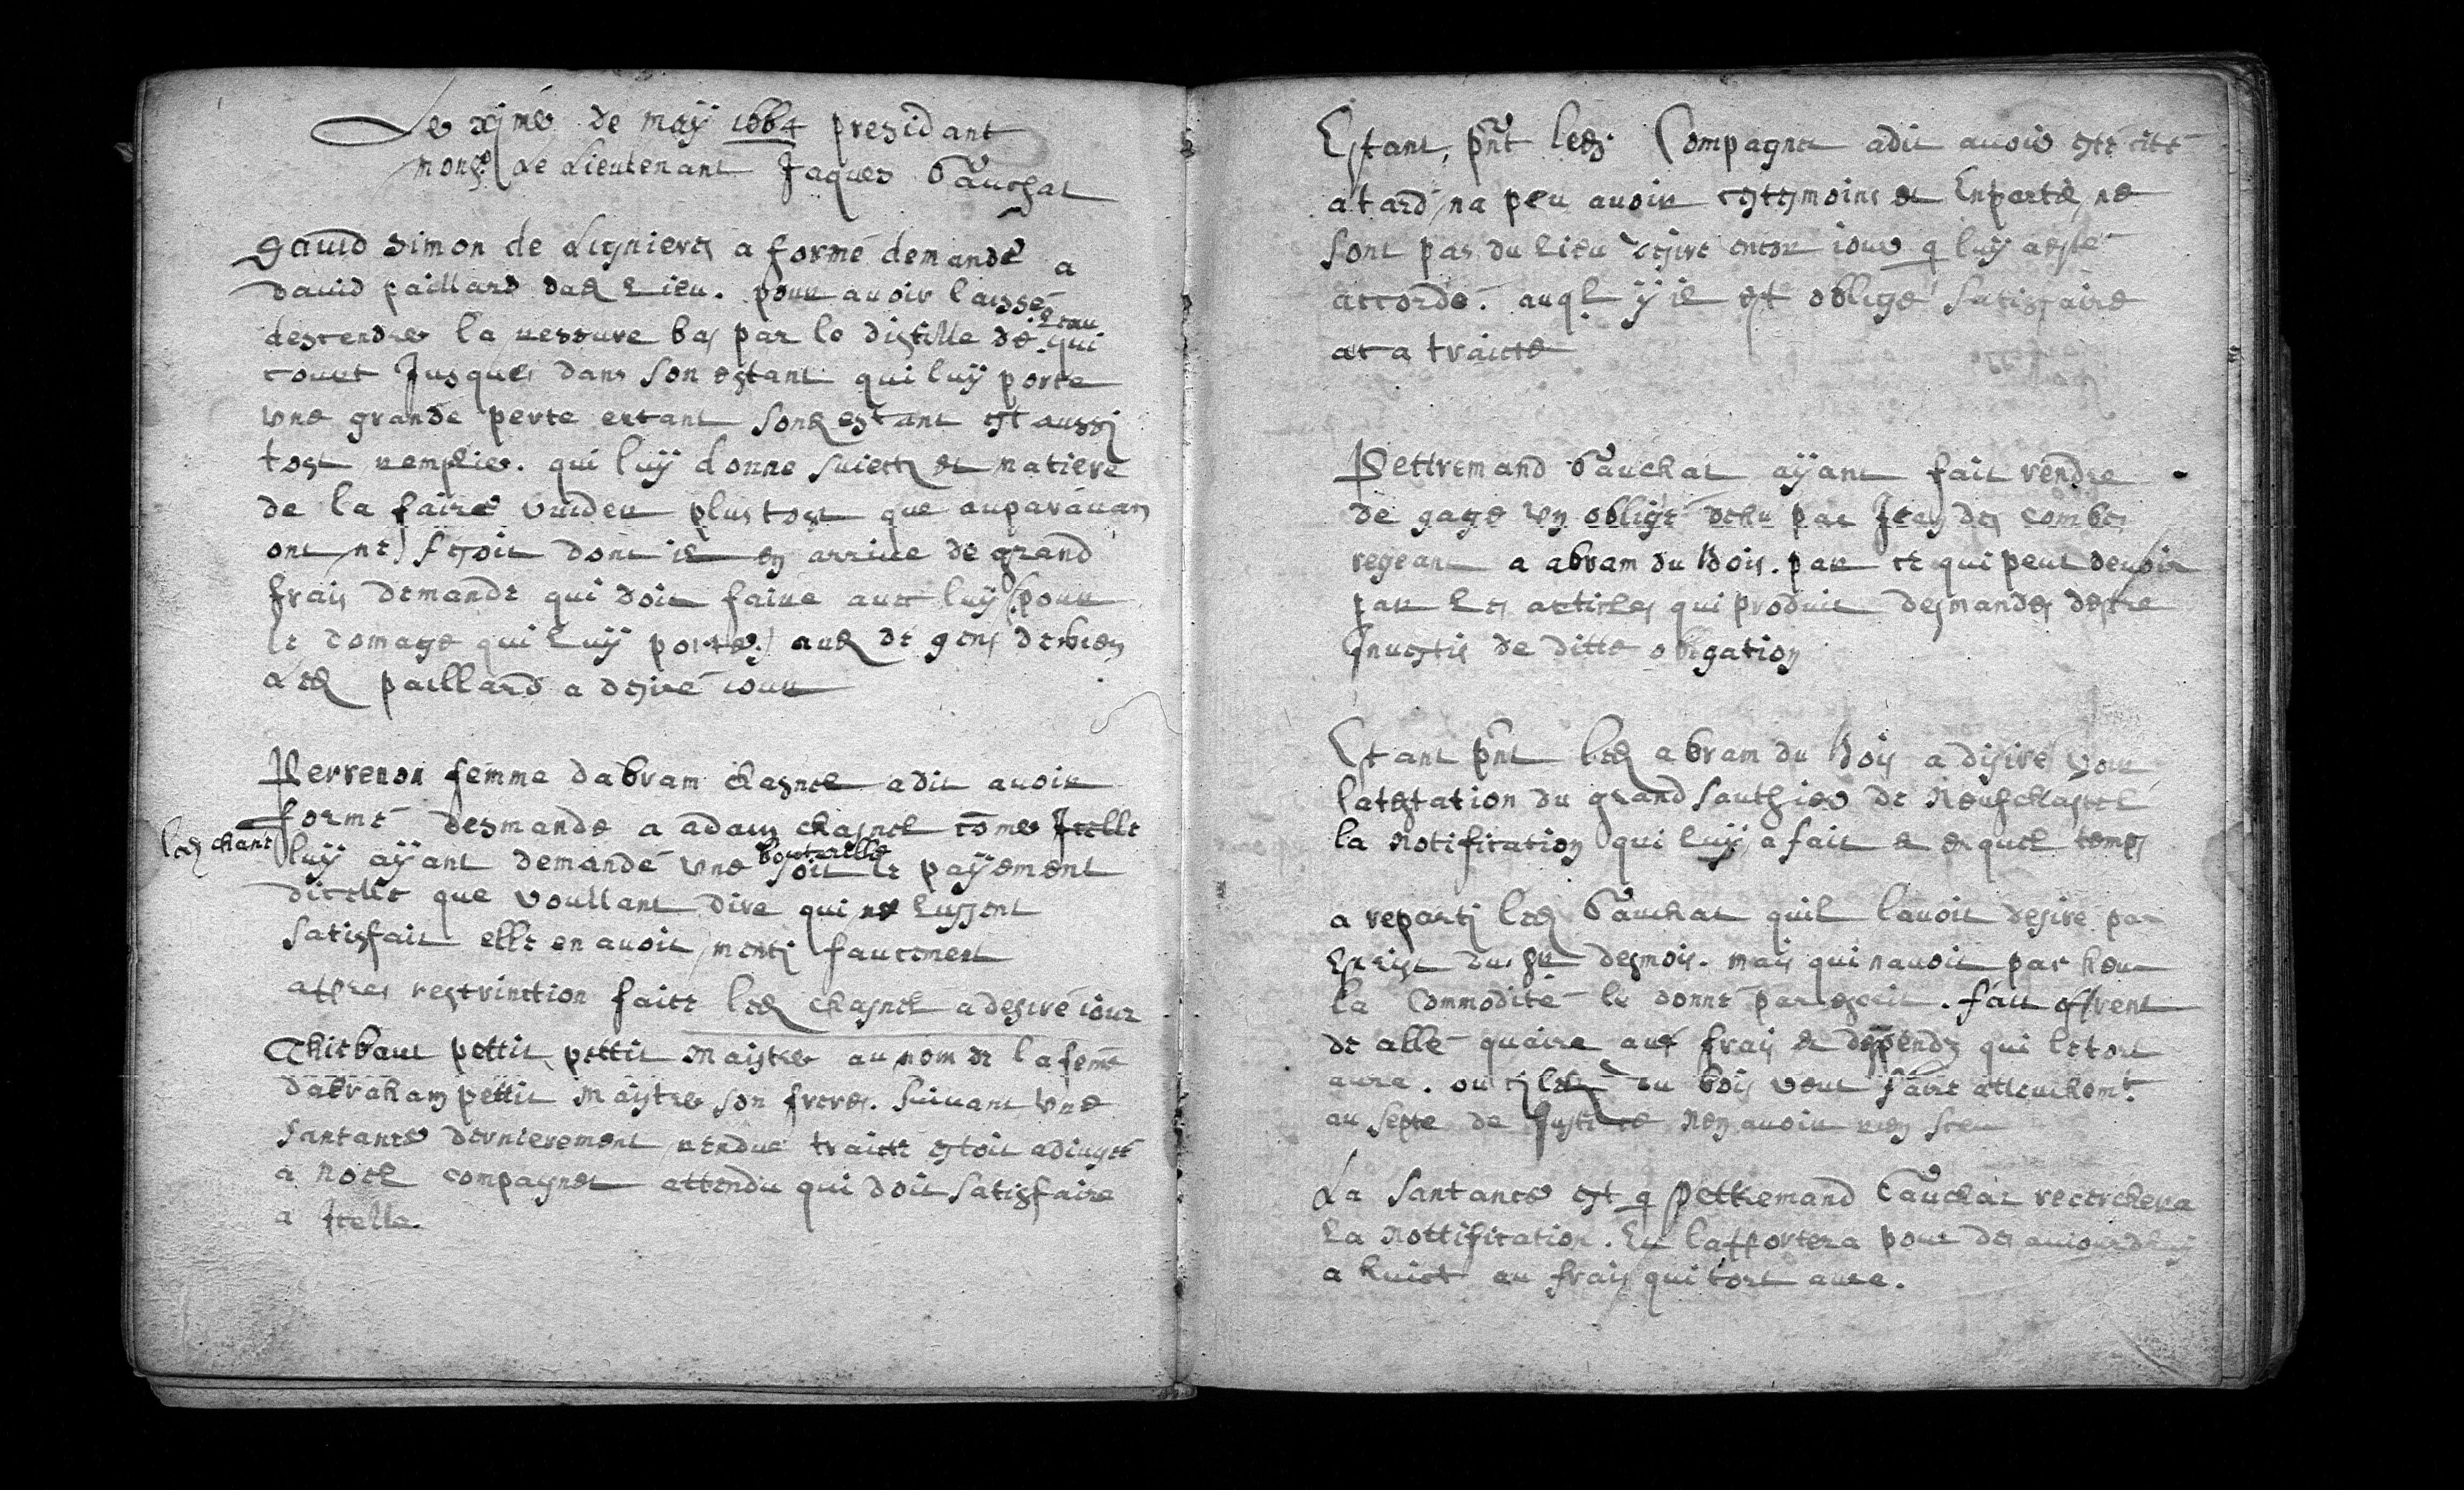 Le xjme de maÿ 1664 presidant
monsr Le Lieutenant Jaques Gauchat
Dauid Simon de Lignieres a formé demande a
dauid paillard dud Lieu. pour auoir laissé
descendre la uessure bas par le distille de leau qui
court Jusques dans son estant qui luÿ porte
vne grande perte estant sond estant est aussj
tost remplie. qui luÿ donne suiect et matiere
de la faire vuider plustost que auparauant
on ne feroit dont il en arriue de grand
frais demande qui doit faire auec luÿ (pour
le domage qui luÿ porte) aud de gens de bien
Led paillard a desiré iour
Perrenon femme dabram chasnel a dit auoir
formé desmande a adam chasnel come Jcelle
led chanel luÿ aÿant demandé vne bouteille soit le paÿement
dicelle que voullant dire qui ne leussent
satisfait elle en auoit mentj faucement
appres restrinction faitte led chasnel a desiré iour
Thiebaut pettit pettit Maistre au nom de la feme
dabraham pettit Maistre son frere. suiuant vne
santance dernierement rendue traicte estoit adiugé
a Noel compagnet attendu qui doit satisfaire
a Jcelle.
Estant pnt led. Compagnet a dit auoir esté cité
a tard na peu auoir ces tesmoins et En partie ne
sont pas du lieu desire encor iour q luÿ a esté
accordé. auql ÿ il est obligé satisfaire
a traicte
Pettremand Gauchat aÿant fait vendre
de gage vn obligé deheu par Jean des combes
regeant a abram du Bois. par ce qui peut deuoir
par les articles qui produit desmandes destre
Jnuestis de ditte obligation
Estant pnt led abram du Bois a desiré voir
latestation du grand sauthier de Neufchastel
la notification qui luÿ a fait et en quel temps
a repartj led Gauchat quil lauoit desiré par
Escrist mais qui nauoit pas heu
la Commodité le donné par escrit. fait offrent
de allé quaire aux frais et despends qui le tort
aura. ou sj led du bois veut faire attouchemt
au septe de Justice Nen auoir rien sceu
La Santance est q pettremand Gauchat recerchera
La Nottification. En lapportera pour des auiourdhuÿ
a huict au frais qui tort aura.